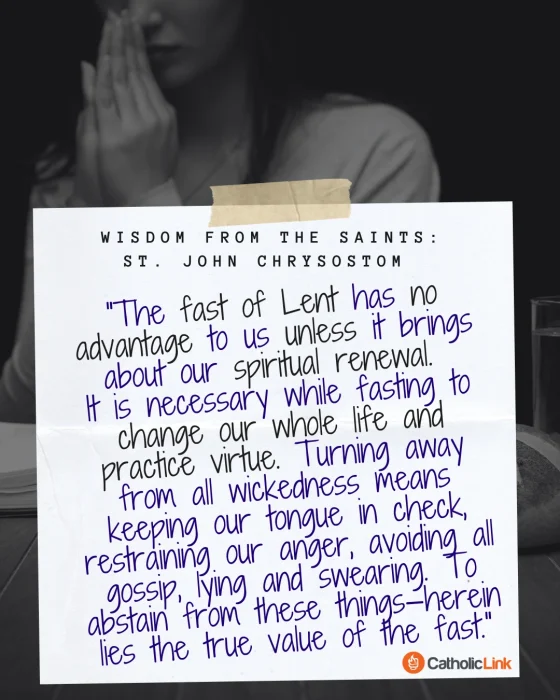 WISDOM FROM THE SAINTS:
ST. JOHN CHRYSOSTOM
"The fast of Lent has no
advantage to us unless it brings
about our spiritual renewal.
It is necessary while fasting to
change our whole life and
practice virtue. Turning away
from all wickedness means
keeping our tongue in check,
restraining our anger, avoiding all
gossip, lying and swearing. To
abstain from these things—herein
lies the true value of the fast."
CatholicLink